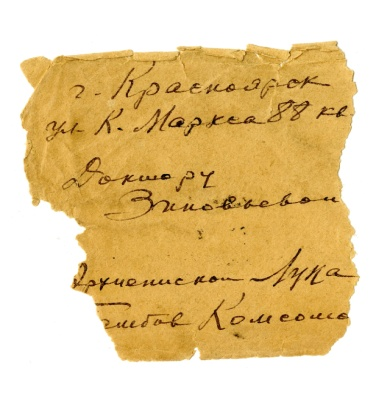 г. Красноярск
ул. К. Маркса 88 кв
Доктору
Зиновьевой
Архиепископ Лука
Тамбов Комсомо